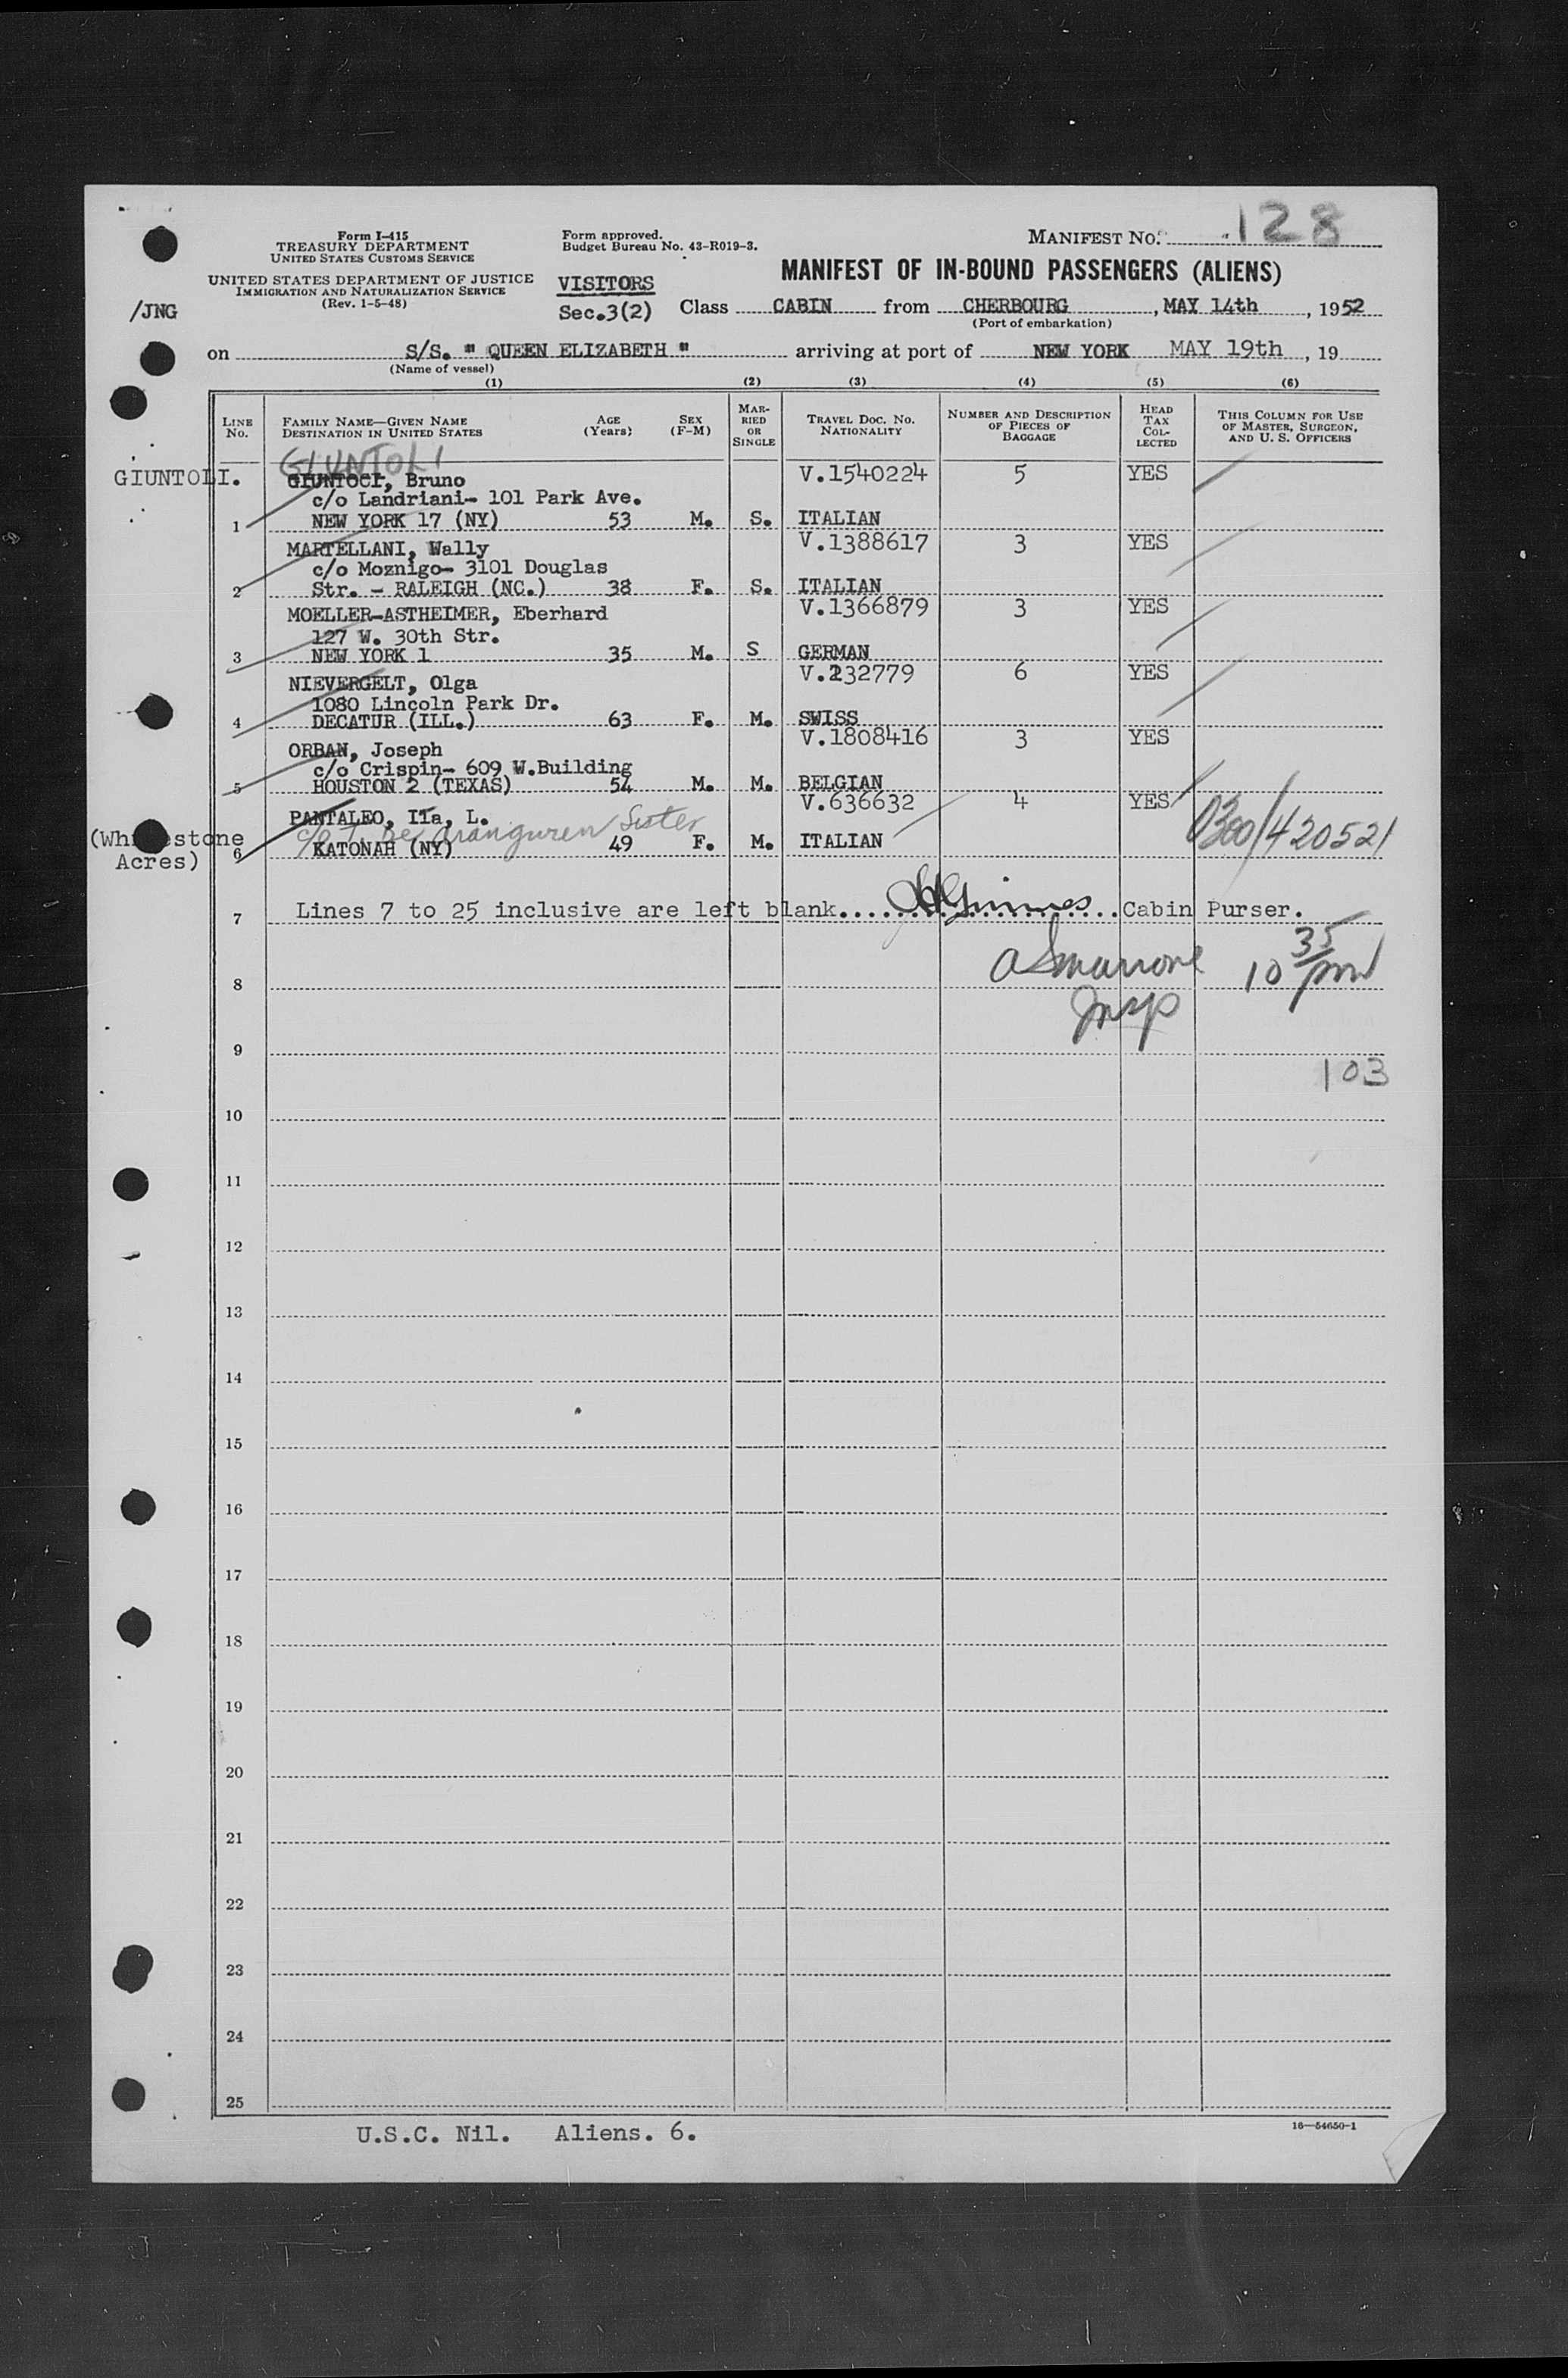 128
Form I-415
TREASURY DEPARTMENT
UNITED STATES CUSTOMS SERVICE
UNITED STATES DEPARTMENT OF JUSTICE
IMMIGRATION AND NATURALIZATION SERVICE
(Rev. 1-5-48)
Form approved.
Budget Bureau No. 43-R019-3.
MANIFEST NO.
MANIFEST OF IN-BOUND PASSENGERS (ALIENS)
/JNG
VISITORS
Sec.3(2)
Class CABIN from CHERBOURG, MAY 14th, 1952
(Port of embarkation)
on S/S. " QUEEN ELIZABETH " arriving at port of NEW YORK MAY 19th, 19
(Name of vessel)
(1) (2) (3) (4) (5) (6)
LINE NO.
FAMILY NAME—GIVEN NAME
DESTINATION IN UNITED STATES
AGE (Years)
SEX (F-M)
MARRIED OR SINGLE
TRAVEL DOC. NO.
NATIONALITY
NUMBER AND DESCRIPTION OF PIECES OF BAGGAGE
HEAD TAX COLLECTED
THIS COLUMN FOR USE OF MASTER, SURGEON, AND U. S. OFFICERS
GIUNTOLI
GIUNTOLI. GIUNTOCI, Bruno V.1540224 5 YES
c/o Landriani- 101 Park Ave.
1 NEW YORK 17 (NY) 53 M. S. ITALIAN
MARTELLANI, Wally V.1388617 3 YES
c/o Moznigo- 3101 Douglas
2 Str. - RALEIGH (NC.) 38 F. S. ITALIAN
MOELLER-ASTHEIMER, Eberhard V.1366879 3 YES
127 W. 30th Str.
3 NEW YORK 1 35 M. S GERMAN
NIEVERGELT, Olga V.232779 6 YES
1080 Lincoln Park Dr.
4 DECATUR (ILL.) 63 F. M. SWISS
ORBAN, Joseph V.1808416 3 YES
c/o Crispin- 609 W.Building
5 HOUSTON 2 (TEXAS) 54 M. M. BELGIAN
PANTALEO, Ila, L. V.636632 4 YES
Aranguren Sister
(Whitestone Acres)
6 KATONAH (NY) 49 F. M. ITALIAN
0300/420521
7 Lines 7 to 25 inclusive are left blank.......Cabin Purser.
10 35 pm
8
Insp
9
103
10
11
12
13
14
15
16
17
18
19
20
21
22
23
24
25
U.S.C. Nil. Aliens. 6.
16—54650-1